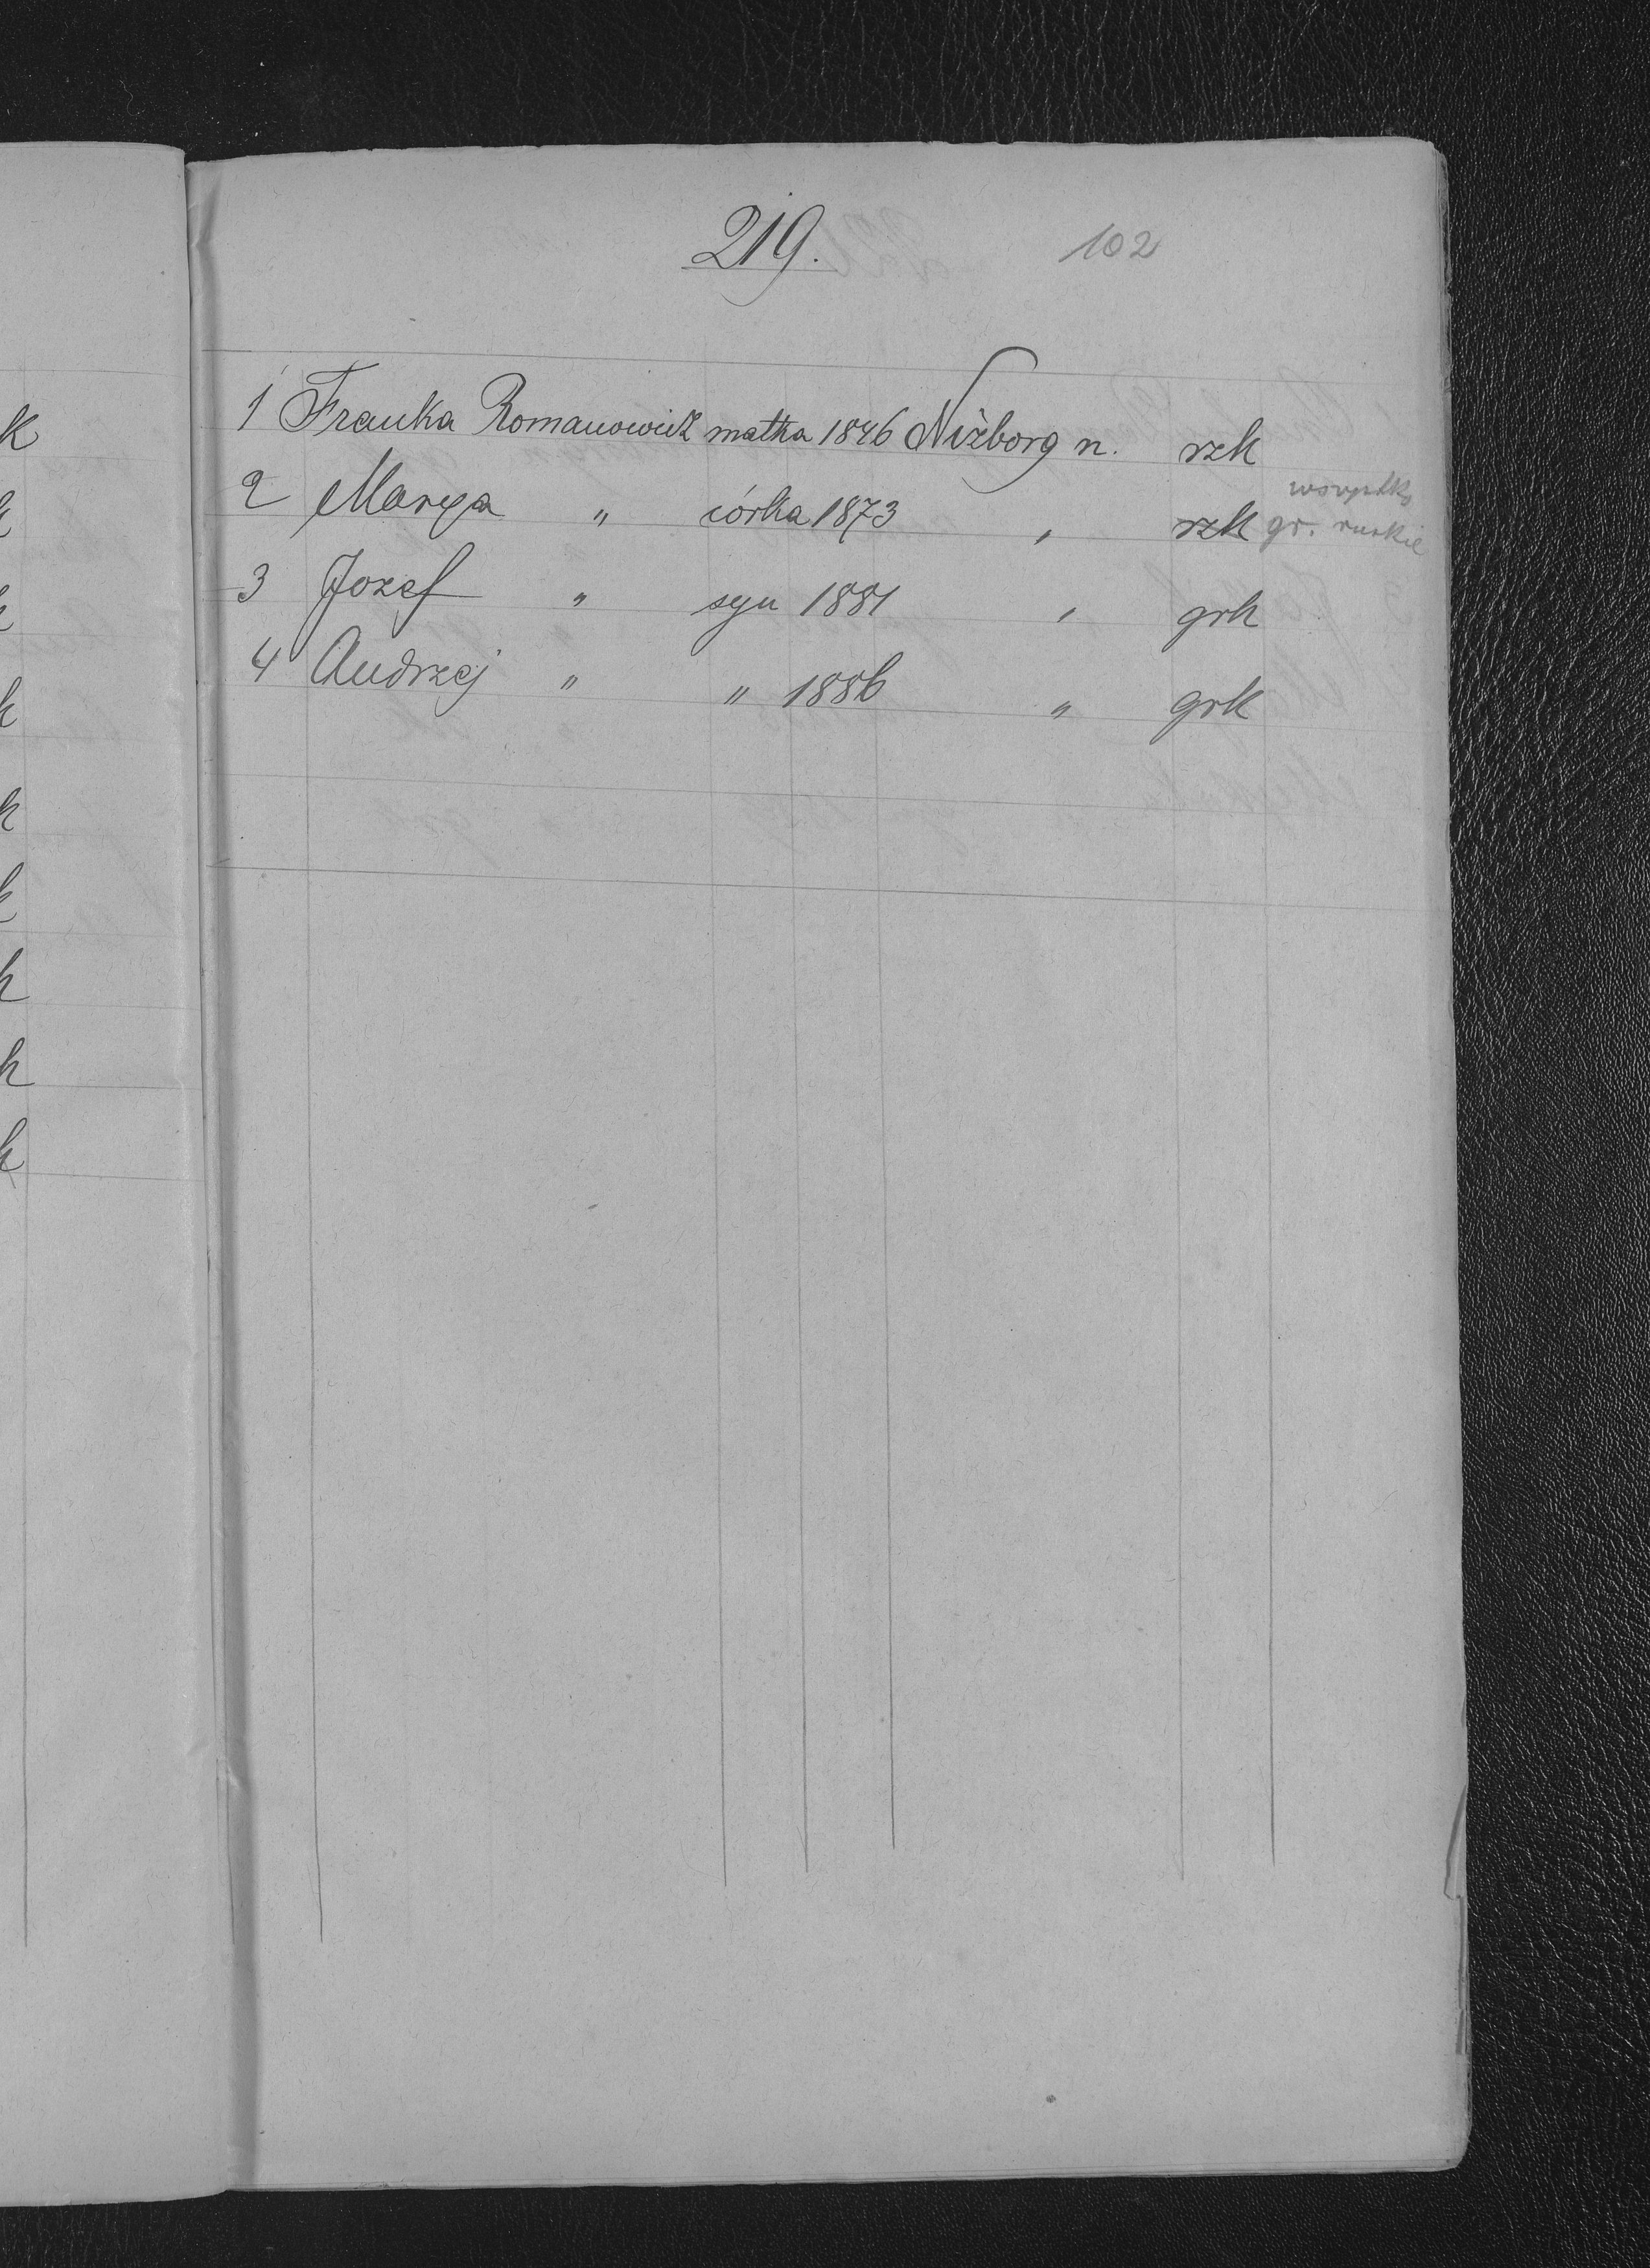 219. 102
1 Franka Romanowicz matka 1846 Niżborg n. rzk
2 Marya " córka 1873 " rzk
wszystko
gr. ruskie
3 Jozef " syn 1881 " grk
4 Andrzej " " 1886 " grk
k
k
k
k
k
k
k
k
k